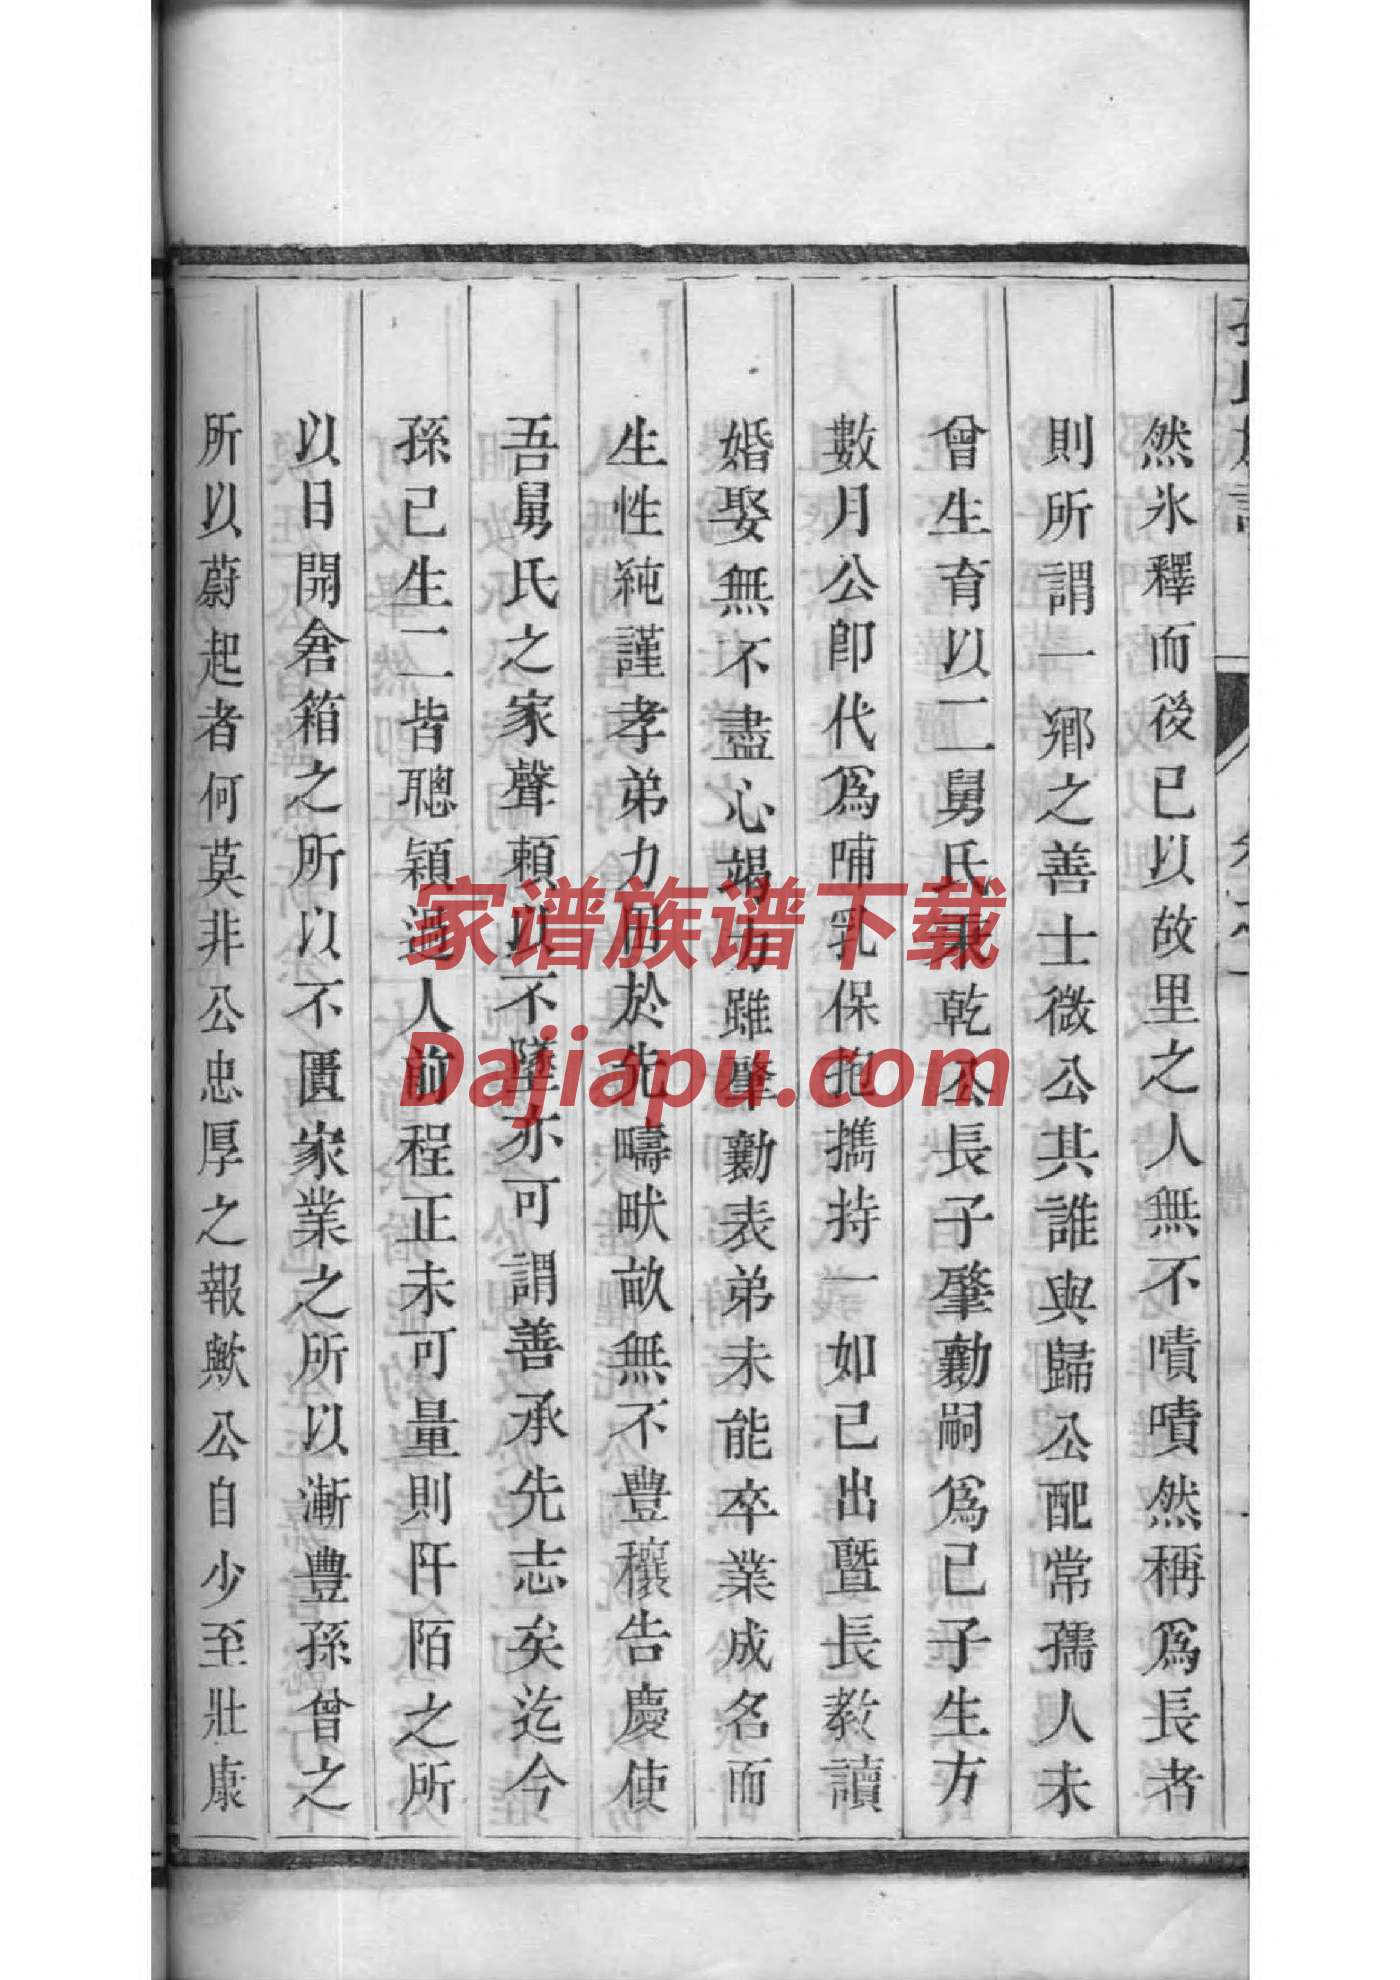 然氷釋而後已以故里之人無不嘖嘖然稱為長者
則所謂一鄉之善士微公其誰與歸公配常孺人未
曾生育以二舅氏秉乾公長子肇勷嗣為己子生方
數月公卽代為哺乳保抱攜持一如己出暨長教讀
婚娶無不盡心竭力雖肇勷表弟未能卒業成名而
生性純謹孝弟力田於先疇畎畝無不豊穰告慶使
吾舅氏之家聲賴以不墜亦可謂善承先志矣迄今
孫已生二皆聰穎過人前程正未可量則阡陌之所
以日開倉箱之所以不匱家業之所以漸豊孫曾之
所以蔚起者何莫非公忠厚之報歟公自少至壯康
家谱族谱下载
Dajiapu.com